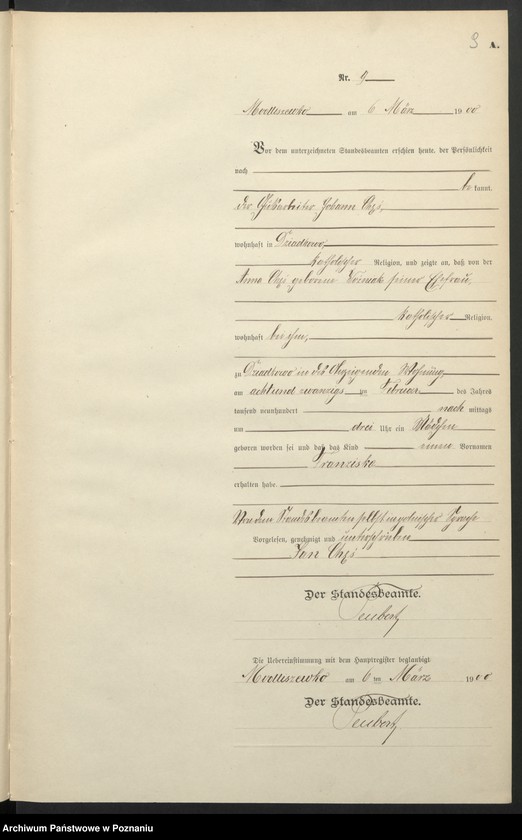 9 A.
Nr. 9
Modliszewko am 6 März 1900
Vor dem unterzeichneten Standesbeamten erschien heute, der Persönlichkeit
nach
be kannt,
der Johann
wohnhaft in Dziadkowo,
katholischer Religion, und zeigte an, daß von der
Anna geborenen Woźniak seiner Ehefrau,
katholischer Religion,
wohnhaft bei ihm,
zu Dziadkowo in des Anzeigenden Wohnung
am achtundzwanzigs ten Februar des Jahres
tausend neunhundert nach mittags
um drei Uhr ein Mädchen
geboren worden sei und daß das Kind einen Vornamen
Franziska
erhalten habe.
Von dem Standesbeamten selbst in polnischer Sprache
Vorgelesen, genehmigt und unterschrieben
Jan
Der Standesbeamte.
Teubert
Die Uebereinstimmung mit dem Hauptregister beglaubigt
Modliszewko am 6 ten März 1900
Der Standesbeamte.
Teubert
Archiwum Państwowe w Poznaniu